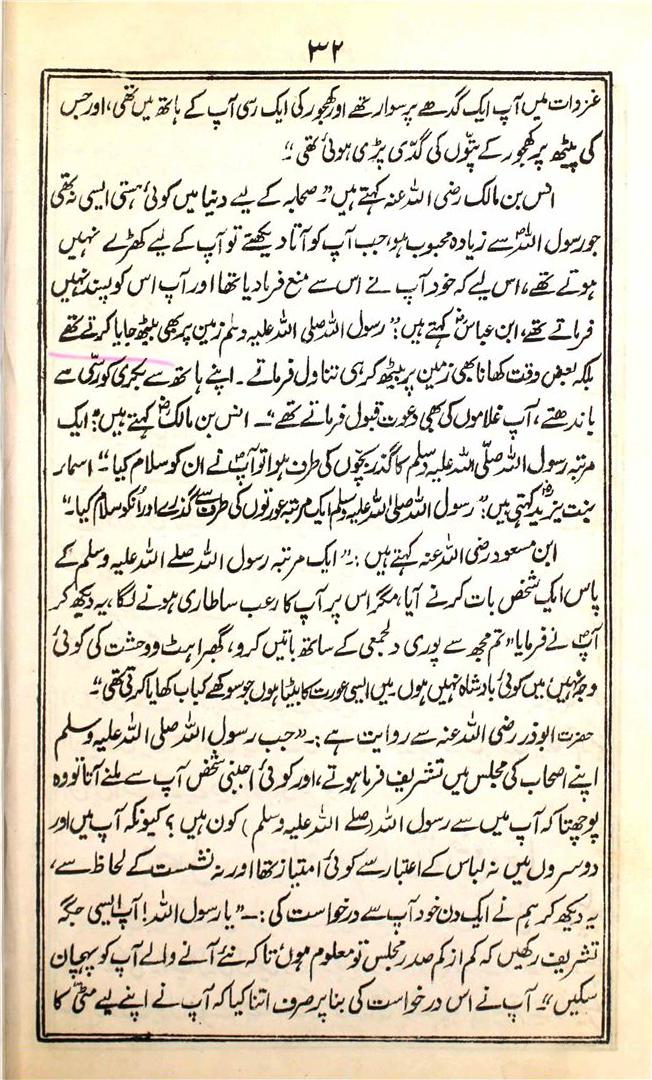 ۳۲
غزوات میں آپ ایک گدھے پر سوار تھے اور کھجور کی ایک رسی آپ کے ہاتھ میں تھی، اور جس
کی پیٹھ پر کھجور کے پتّوں کی گدّی پڑی ہوئی تھی۔"
انس بن مالک رضی اللہ عنہ کہتے ہیں "۔ صحابہ کے لیے دنیا میں کوئی ہستی ایسی نہ تھی
جو رسول اللہؐ سے زیادہ محبوب ہو، جب آپ کو آتا دیکھتے تو آپ کے لیے کھڑے نہیں
ہوتے تھے، اس لیے کہ خود آپ نے اس سے منع فرمادیا تھا اور آپ اس کو پسند نہیں
فرماتے تھے، ابن عباسؓ کہتے ہیں: "رسول اللہ صلی اللہ علیہ وسلم زمین پر بھی بیٹھ جایا کرتے تھے
بلکہ بعض وقت کھانا بھی زمین پر بیٹھ کر ہی تناول فرماتے۔ اپنے ہاتھ سے بکری کو رسّی سے
باندھتے، آپ غلاموں کی بھی دعوت قبول فرماتے تھے"۔ انس بن مالکؓ کہتے ہیں: "ایک
مرتبہ رسول اللہ صلّی اللہ علیہ وسلم کا گذر بچّوں کی طرف ہوا تو آپؐ نے ان کو سلام کیا۔" اسمار
بنت یزیدؓ کہتی ہیں: "رسول اللہ صلی اللہ علیہ وسلم ایک مرتبہ عورتوں کی طرف سے گذرے اور انکو سلام کیا۔"
ابن مسعود رضی اللہ عنہ کہتے ہیں :۔" ایک مرتبہ رسول اللہ صلے اللہ علیہ وسلم کے
پاس ایک شخص بات کرنے آیا، مگر اس پر آپ کا رعب سا طاری ہونے لگا، یہ دیکھ کر
آپؐ نے فرمایا "تم مجھ سے پوری دلجمعی کے ساتھ باتیں کرو، گھبراہٹ و وحشت کی کوئی
وجہ نہیں، میں کوئی بادشاہ نہیں ہوں۔ میں ایسی عورت کا بیٹا ہوں جو سوکھے کباب کھایا کرتی تھی"۔
حضرت ابوذر رضی اللہ عنہ سے روایت ہے :۔"جب رسول اللہ صلی اللہ علیہ وسلم
اپنے اصحاب کی مجلس میں تشریف فرما ہوتے، اور کوئی اجنبی شخص آپ سے ملنے آتا تو وہ
پوچھتا کہ آپ میں سے رسول اللہ (صلے اللہ علیہ وسلم) کون ہیں؟ کیونکہ آپ میں اور
دوسروں میں نہ لباس کے اعتبار سے کوئی امتیاز تھا اور نہ نشست کے لحاظ سے،
یہ دیکھ کر ہم نے ایک دن خود آپ سے درخواست کی :۔"یا رسول اللہ! آپ ایسی جگہ
تشریف رکھیں کہ کم از کم صدر مجلس تو معلوم ہوں تاکہ نئے آنے والے آپ کو پہچان
سکیں"۔ آپ نے اس درخواست کی بنا پر صرف اتنا کیا کہ آپ نے اپنے لیے مٹّی کا